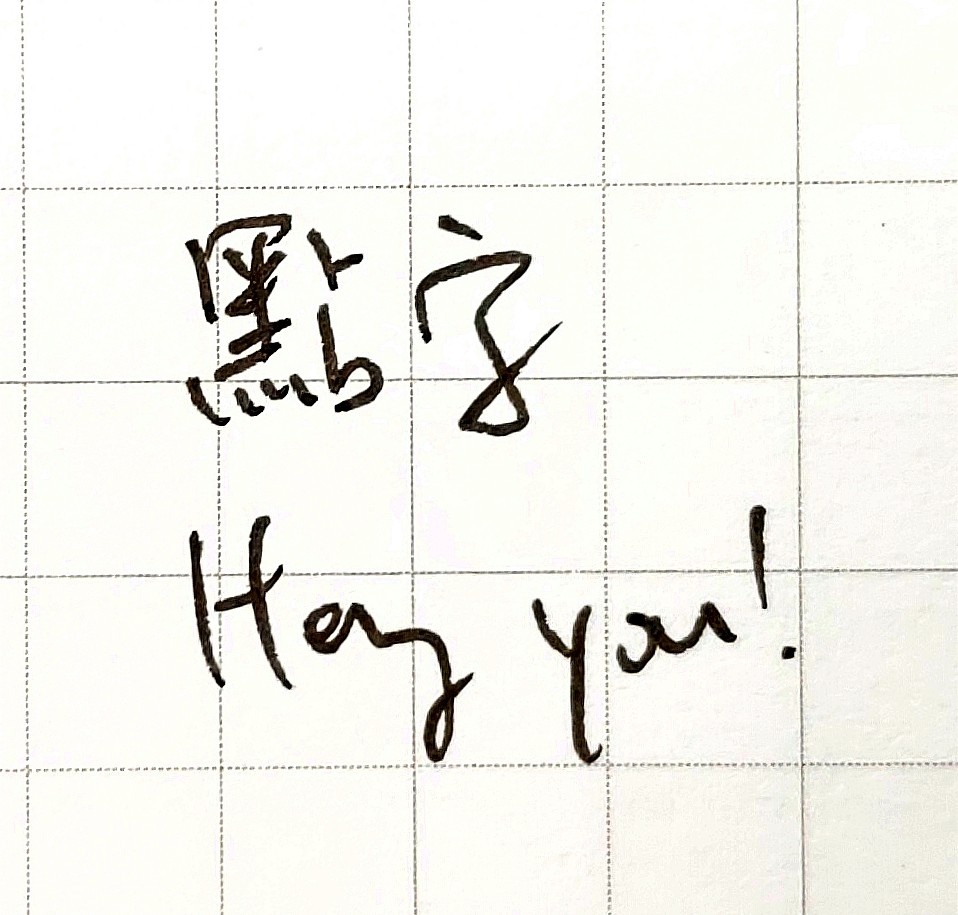 點字
Hey you!